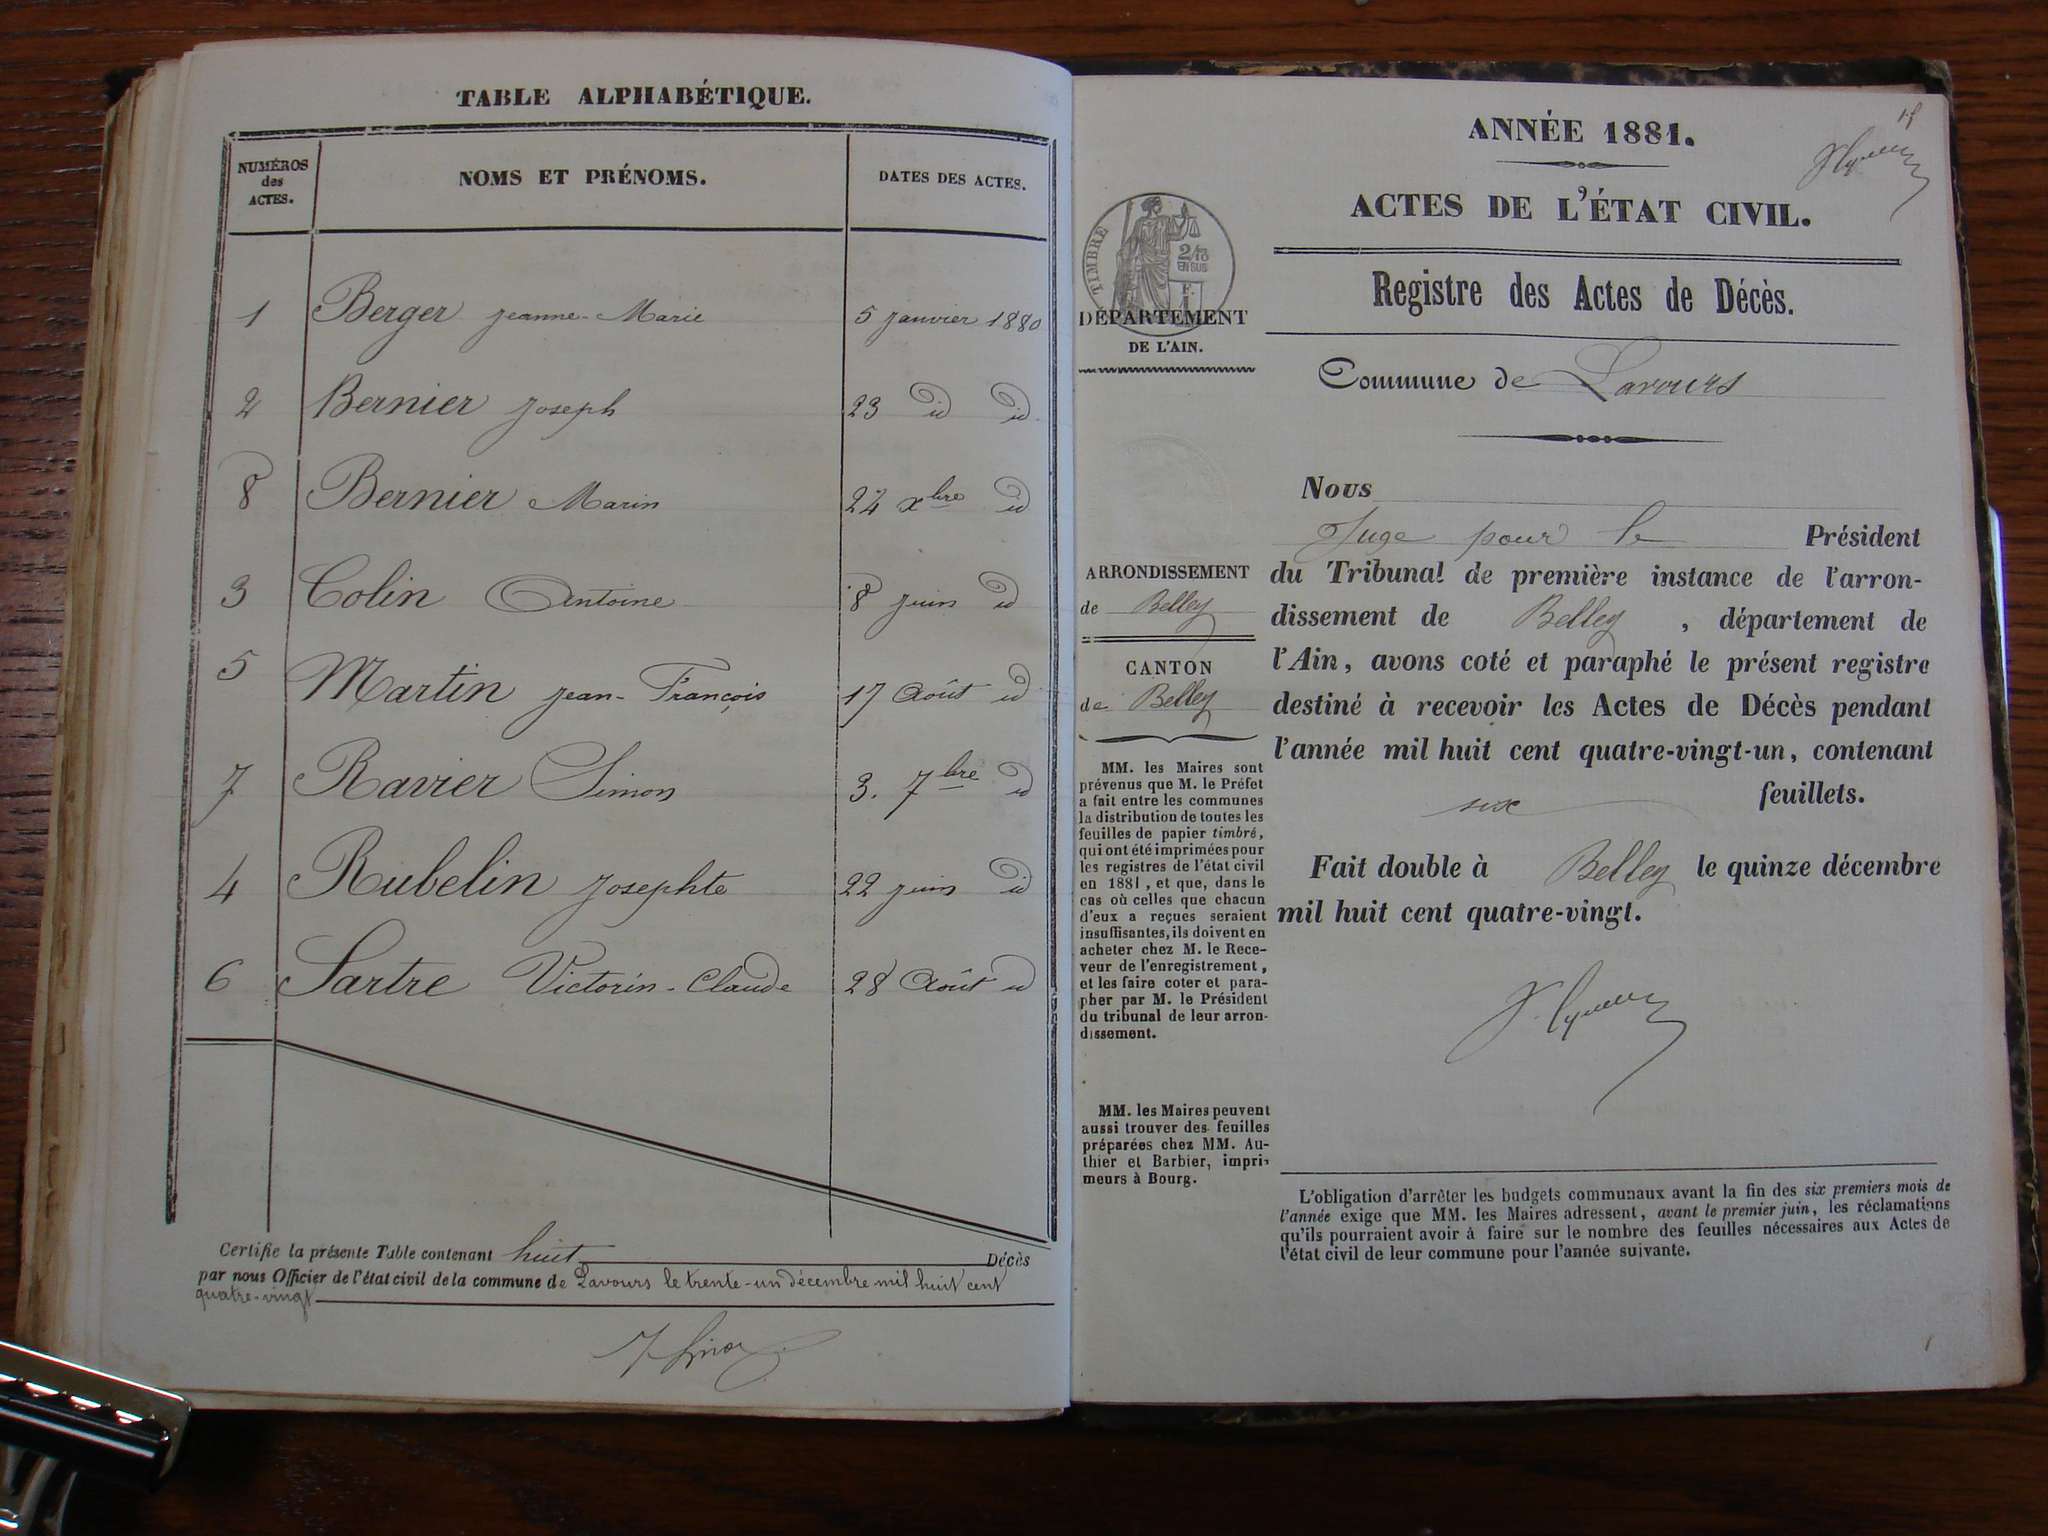 TABLE ALPHABÉTIQUE.
NUMÉROS
des
ACTES.
NOMS ET PRÉNOMS.
DATES DES ACTES.
1 Berger Jeanne-Marie 5 Janvier 1880
2 Bernier Joseph 23 id id
8 Bernier Marin 24 xbre id
3 Colin Antoine 8 juin id
5 Martin Jean-François 17 Août id
7 Ravier Simon 3. 7bre id
4 Rubelin Josephte 22 juin id
6 Sartre Victorin-Claude 28 Août id
Certifie la présente Table contenant huit Décès
par nous Officier de l'état civil de la commune de Lavours le trente-un décembre mil huit cent
quatre-vingt
ANNÉE 1881.
ACTES DE L'ÉTAT CIVIL.
Registre des Actes de Décès.
Commune de Lavours
TIMBRE
2/10
EN SUS
DÉPARTEMENT
DE L'AIN.
ARRONDISSEMENT
de Belley
CANTON
de Belley
MM. les Maires sont
prévenus que M. le Préfet
a fait entre les communes
la distribution de toutes les
feuilles de papier timbré,
qui ont été imprimées pour
les registres de l'état civil
en 1881, et que, dans le
cas où celles que chacun
d'eux a reçues seraient
insuffisantes, ils doivent en
acheter chez M. le Rece-
veur de l'enregistrement,
et les faire coter et para-
pher par M. le Président
du tribunal de leur arron-
dissement.
MM. les Maires peuvent
aussi trouver des feuilles
préparées chez MM. Au-
thier et Barbier, impri-
meurs à Bourg.
Nous
Juge pour le Président
du Tribunal de première instance de l'arron-
dissement de Belley, département de
l'Ain, avons coté et paraphé le présent registre
destiné à recevoir les Actes de Décès pendant
l'année mil huit cent quatre-vingt-un, contenant
six feuillets.
Fait double à Belley le quinze décembre
mil huit cent quatre-vingt.
L'obligation d'arrêter les budgets communaux avant la fin des six premiers mois de
l'année exige que MM. les Maires adressent, avant le premier juin, les réclamations
qu'ils pourraient avoir à faire sur le nombre des feuilles nécessaires aux Actes de
l'état civil de leur commune pour l'année suivante.